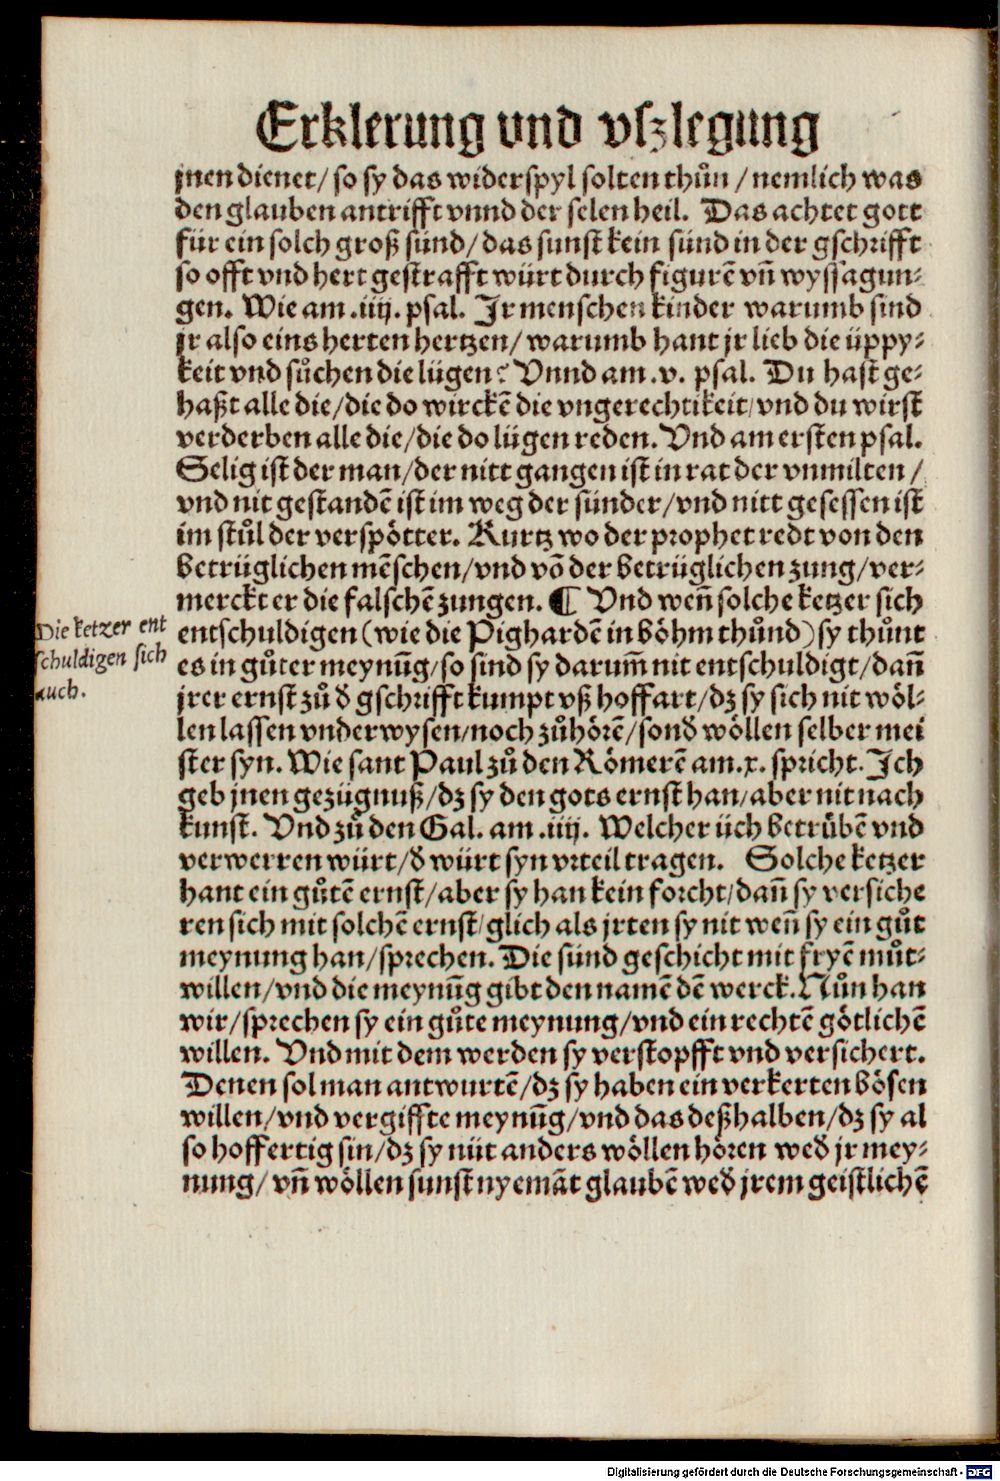 Erklerung vnd vſzlegung
jnen dienet/ so sy das widerspyl solten thůn /nemlich was
den glauben antrifft vnnd der selen heil. Das achtet gott
für ein solch groß sünd/das sunst kein sünd in der gschrifft
so offt vnd hert gestrafft würt durch figurē vñ wyssagun⸗
gen. Wie am .iiij. psal. Ir menschen kinder warumb sind
jr also eins herten hertzen/ warumb hant jr lieb die üppy⸗
keit vnd sůchen die lügen? Vnnd am .v. psal. Du hast ge⸗
haßt alle die/die do wirckē die vngerechtikeit/vnd du wirst
verderben alle die/die do lügen reden. Vnd am ersten psal.
Selig ist der man/der nitt gangen ist in rat der vnmilten /
vnd nit gestandē ist im weg der sünder/vnd nitt gesessen ist
im stůl der verspötter. Kurtz wo der prophet redt von den
betrüglichen mēschen/vnd vō der betrüglichen zung/ver⸗
merckt er die falschē zungen. ¶ Vnd weñ solche ketzer sich
Die ketzer ent
schuldigen sich
auch.
entschuldigen (wie die Pighardē in böhm thůnd) sy thůnt
es in gůter meynūg/so sind sy darum̄ nit entschuldigt/dañ
jrer ernst zů đ gschrifft kumpt vß hoffart/dz sy sich nit wöl⸗
len lassen vnderwysen/noch zůhörē/sonđ wöllen selber mei
ster syn. Wie sant Paul zů den Römerē am .x. spricht. Ich
geb jnen gezügnuß/dz sy den gots ernst han/aber nit nach
kunst. Vnd zů den Gal. am .iiij. Welcher üch betrübē vnd
verwerren würt/đ würt syn vrteil tragen. Solche ketzer
hant ein gůtē ernst/aber sy han kein forcht/dañ sy versiche
ren sich mit solchē ernst/glich als jrten sy nit weñ sy ein gůt
meynung han/sprechen. Die sünd geschicht mit fryē můt⸗
willen/vnd die meynūg gibt den namē dē werck. Nůn han
wir/sprechen sy ein gůte meynung/vnd ein rechtē götlichē
willen. Vnd mit dem werden sy verstopfft vnd versichert.
Denen sol man antwurtē/dz sy haben ein verkerten bösen
willen/vnd vergiffte meynūg/vnd das deßhalben/dz sy al
so hoffertig sin/dz sy nüt anders wöllen hören weđ jr mey⸗
nung/ vñ wöllen sunst nyemāt glaubē weđ jrem geistlichē
Digitalisierung gefördert durch die Deutsche Forschungsgemeinschaft - DFG